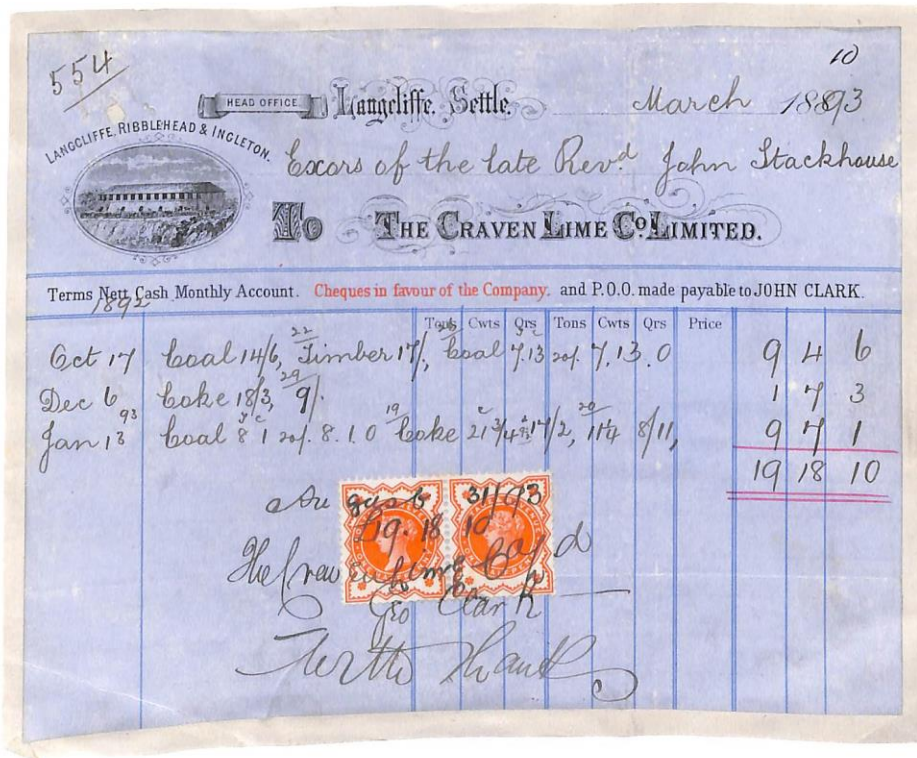 554
10
HEAD OFFICE. Langcliffe. Settle. March 1893
LANGCLIFFE, RIBBLEHEAD & INGLETON.
Excors of the late Revd. John Stackhouse
To THE CRAVEN LIME Co. LIMITED.
Terms Nett Cash Monthly Account. Cheques in favour of the Company. and P.O.O. made payable to JOHN CLARK.
1892
Tons Cwts Qrs Tons Cwts Qrs Price
Oct 17 Coal 14/6, 22 Timber 17/, Coal 7.13 20/. 7.13.0 9 4 6
Dec 6 Coke 18/3, 29 9/. 1 7 3
93
Jan 13 Coal 8 1 20/. 8.1.0 19 Coke 17/2, 20 8/11, 9 7 1
19 18 10
31/93
£19. 18 10
The Craven Lime Co Ld
Geo Clark
With Thanks